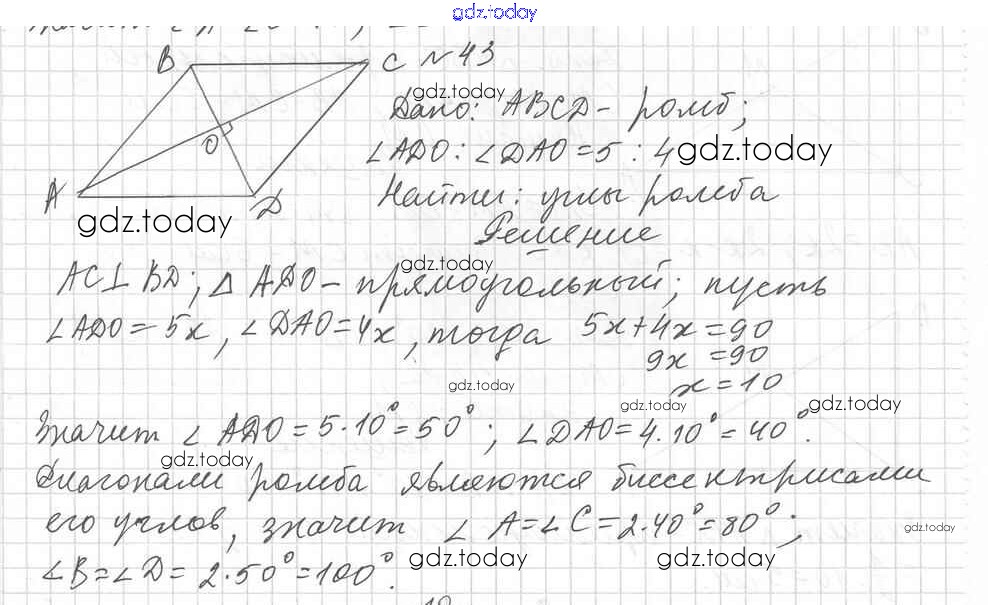 gdz.today
B C №43
gdz.today
Дано: ABCD - ромб;
∠ADO : ∠DAO = 5 : 4 gdz.today
O
A D Найти: углы ромба
gdz.today
Решение
gdz.today
AC⊥BD; △ADO - прямоугольный; пусть
∠ADO = 5x, ∠DAO = 4x, тогда 5x+4x=90
9x = 90
gdz.today x = 10
gdz.today gdz.today
Значит ∠ADO = 5·10° = 50°; ∠DAO = 4·10° = 40°.
gdz.today
Диагонали ромба являются биссектрисами
его углов, значит ∠A=∠C=2·40°=80°;
gdz.today
gdz.today gdz.today
∠B=∠D= 2·50°=100°.